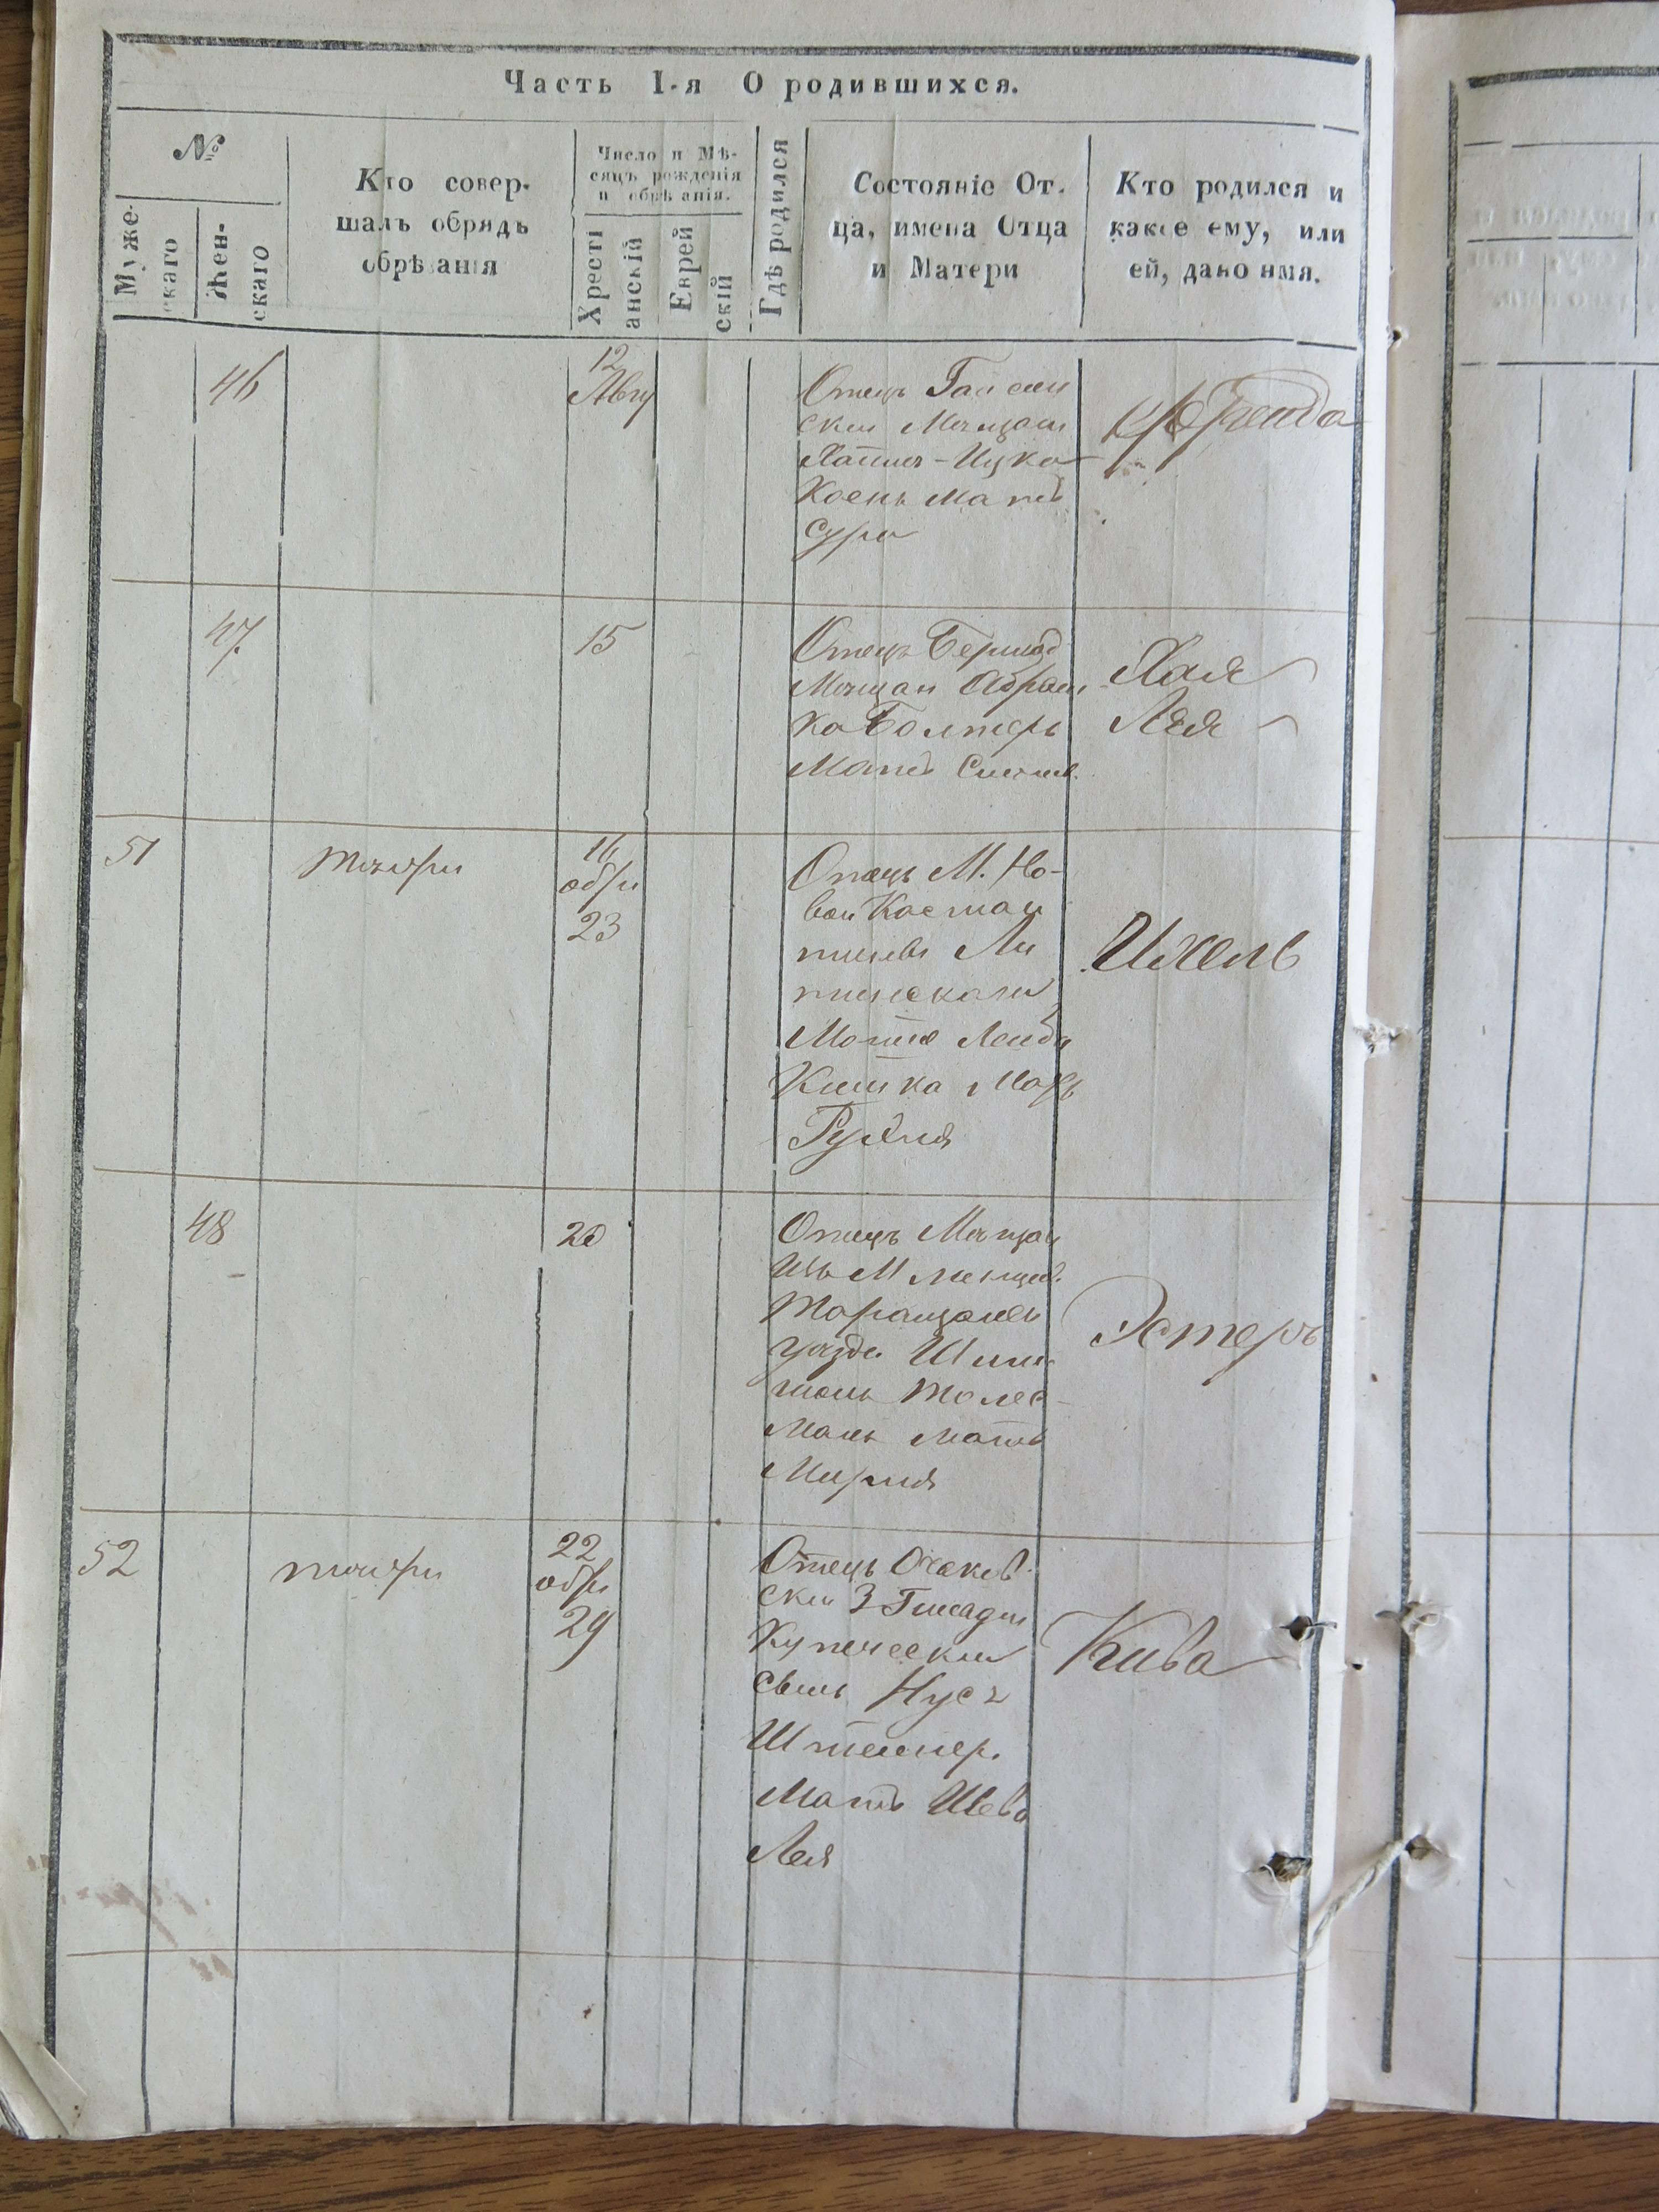 Часть I-я О родившихся.
№
Муже-
скаго
Жен-
скаго
Кто совер-
шалъ обрядъ
обрѣзанія
Число и Мѣ-
сяцъ рожденія
и обрѣзанія.
Хрестi
анскій
Еврей
скій
Гдѣ родился
Состояніе От-
ца, имена Отца
и Матери
Кто родился и
какое ему, или
ей, дано имя.
46
12
Авгу
Отецъ Гайсин
ски Мѣщан
Ицко
Коенъ мать
Сура
Фрейда
47
15
Отецъ Бершад
Мѣщан Абрам
ко Болтеръ
Мать
Хая
Лея
51
16
обрѣ
23
Отецъ М. Но-
вой Констан
тиновъ Ли
тинскаго
Мошко Лейб
Кишка Мать
Рухля
Ихель
48
20
Отецъ Мѣщан
инъ М
Таращанск
уѣзда Шлио
монъ Толес
манъ мать
Мирія
Эстеръ
52
22
обрѣ
29
Отецъ Очаков
ски 3 Гильдіи
Купеческій
сынъ Нусъ
Штейнер.
Мать Шева
Лея
Кива